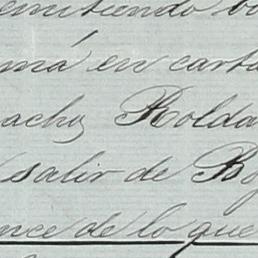 emitiendo
má en carta
acho, Rolda
salir de Bo
nce de lo que